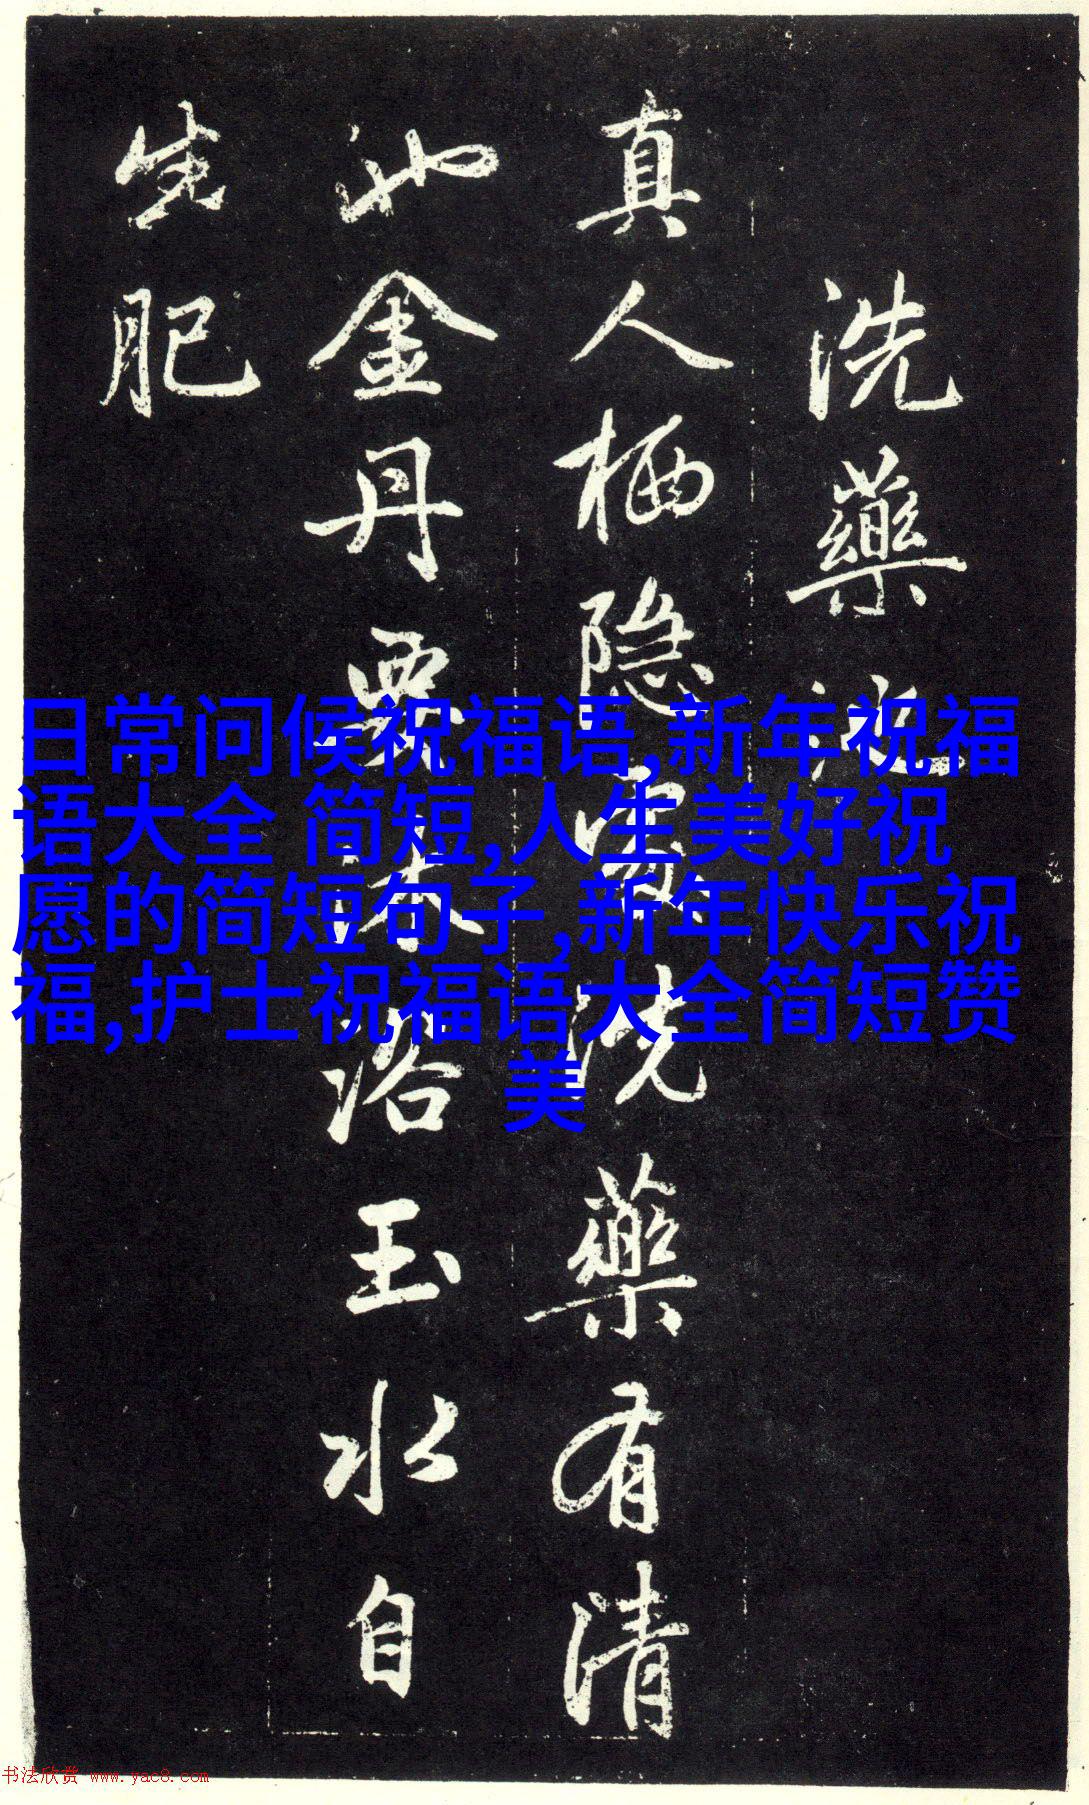 洗藥池
真人栖隐處洗藥有清
池金丹要沐浴玉水自
生肥
日常问候祝福语,新年祝福
语大全 简短,人生美好祝
愿的简短句子,新年快乐祝
福,护士祝福语大全简短赞
美
书法欣赏 www.yac8.com